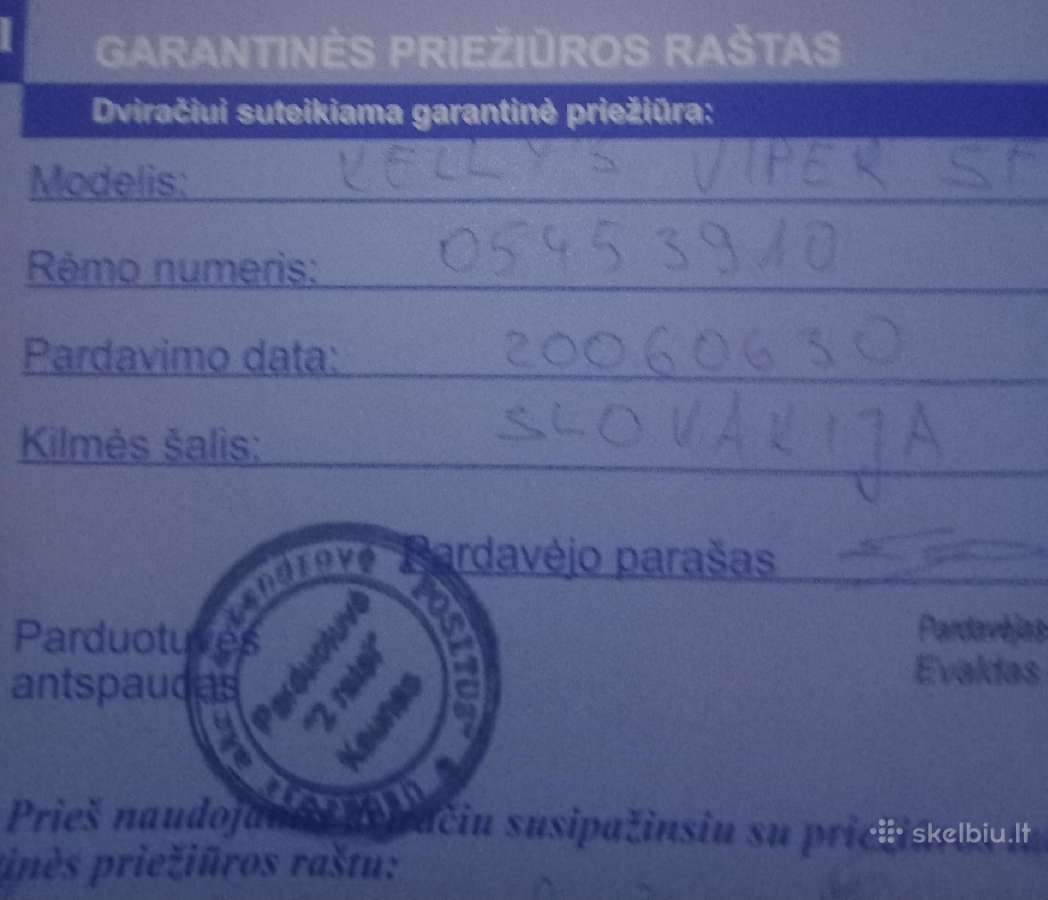 GARANTINĖS PRIEŽIŪROS RAŠTAS
Dviračiui suteikiama garantinė priežiūra:
Modelis: KELLY'S VIPER
Rėmo numeris: 05453910
Pardavimo data: 20060630
Kilmės šalis: SLOVAKIJA
Pardavėjo parašas
Parduotuvės
antspaudas
bendrovė "POSITUS"
Parduotuvė
"2 ratai"
Kaunas
Pardavėjas
Evaldas
Prieš naudojantis dviračiu susipažinsiu su priežiūros
raštu:
skelbiu.lt